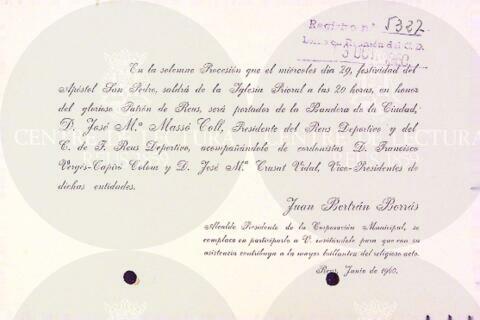 Registro nº 5327
3 OCT. 1960
En la solemne Procesión que el miércoles día 29, festividad del
Apóstol San Pedro, saldrá de la Iglesia Prioral a las 20 horas, en honor
del glorioso Patrón de Reus, será portador de la Bandera de la Ciudad,
D. José M.ª Massó Coll, Presidente del Reus Deportivo y del
C. de F. Reus Deportivo, acompañándole de cordonistas D. Francisco
Vergés-Capiró Colom y D. José M.ª Crusat Vidal, Vice-Presidentes de
dichas entidades.
Juan Bertrán Borrás
Alcalde Presidente de la Corporación Municipal, se
complace en participarlo a V. invitándole para que con su
asistencia contribuya a la mayor brillantez del religioso acto.
Reus, Junio de 1960.
CENTRE DE LECTURA
REUS 1859